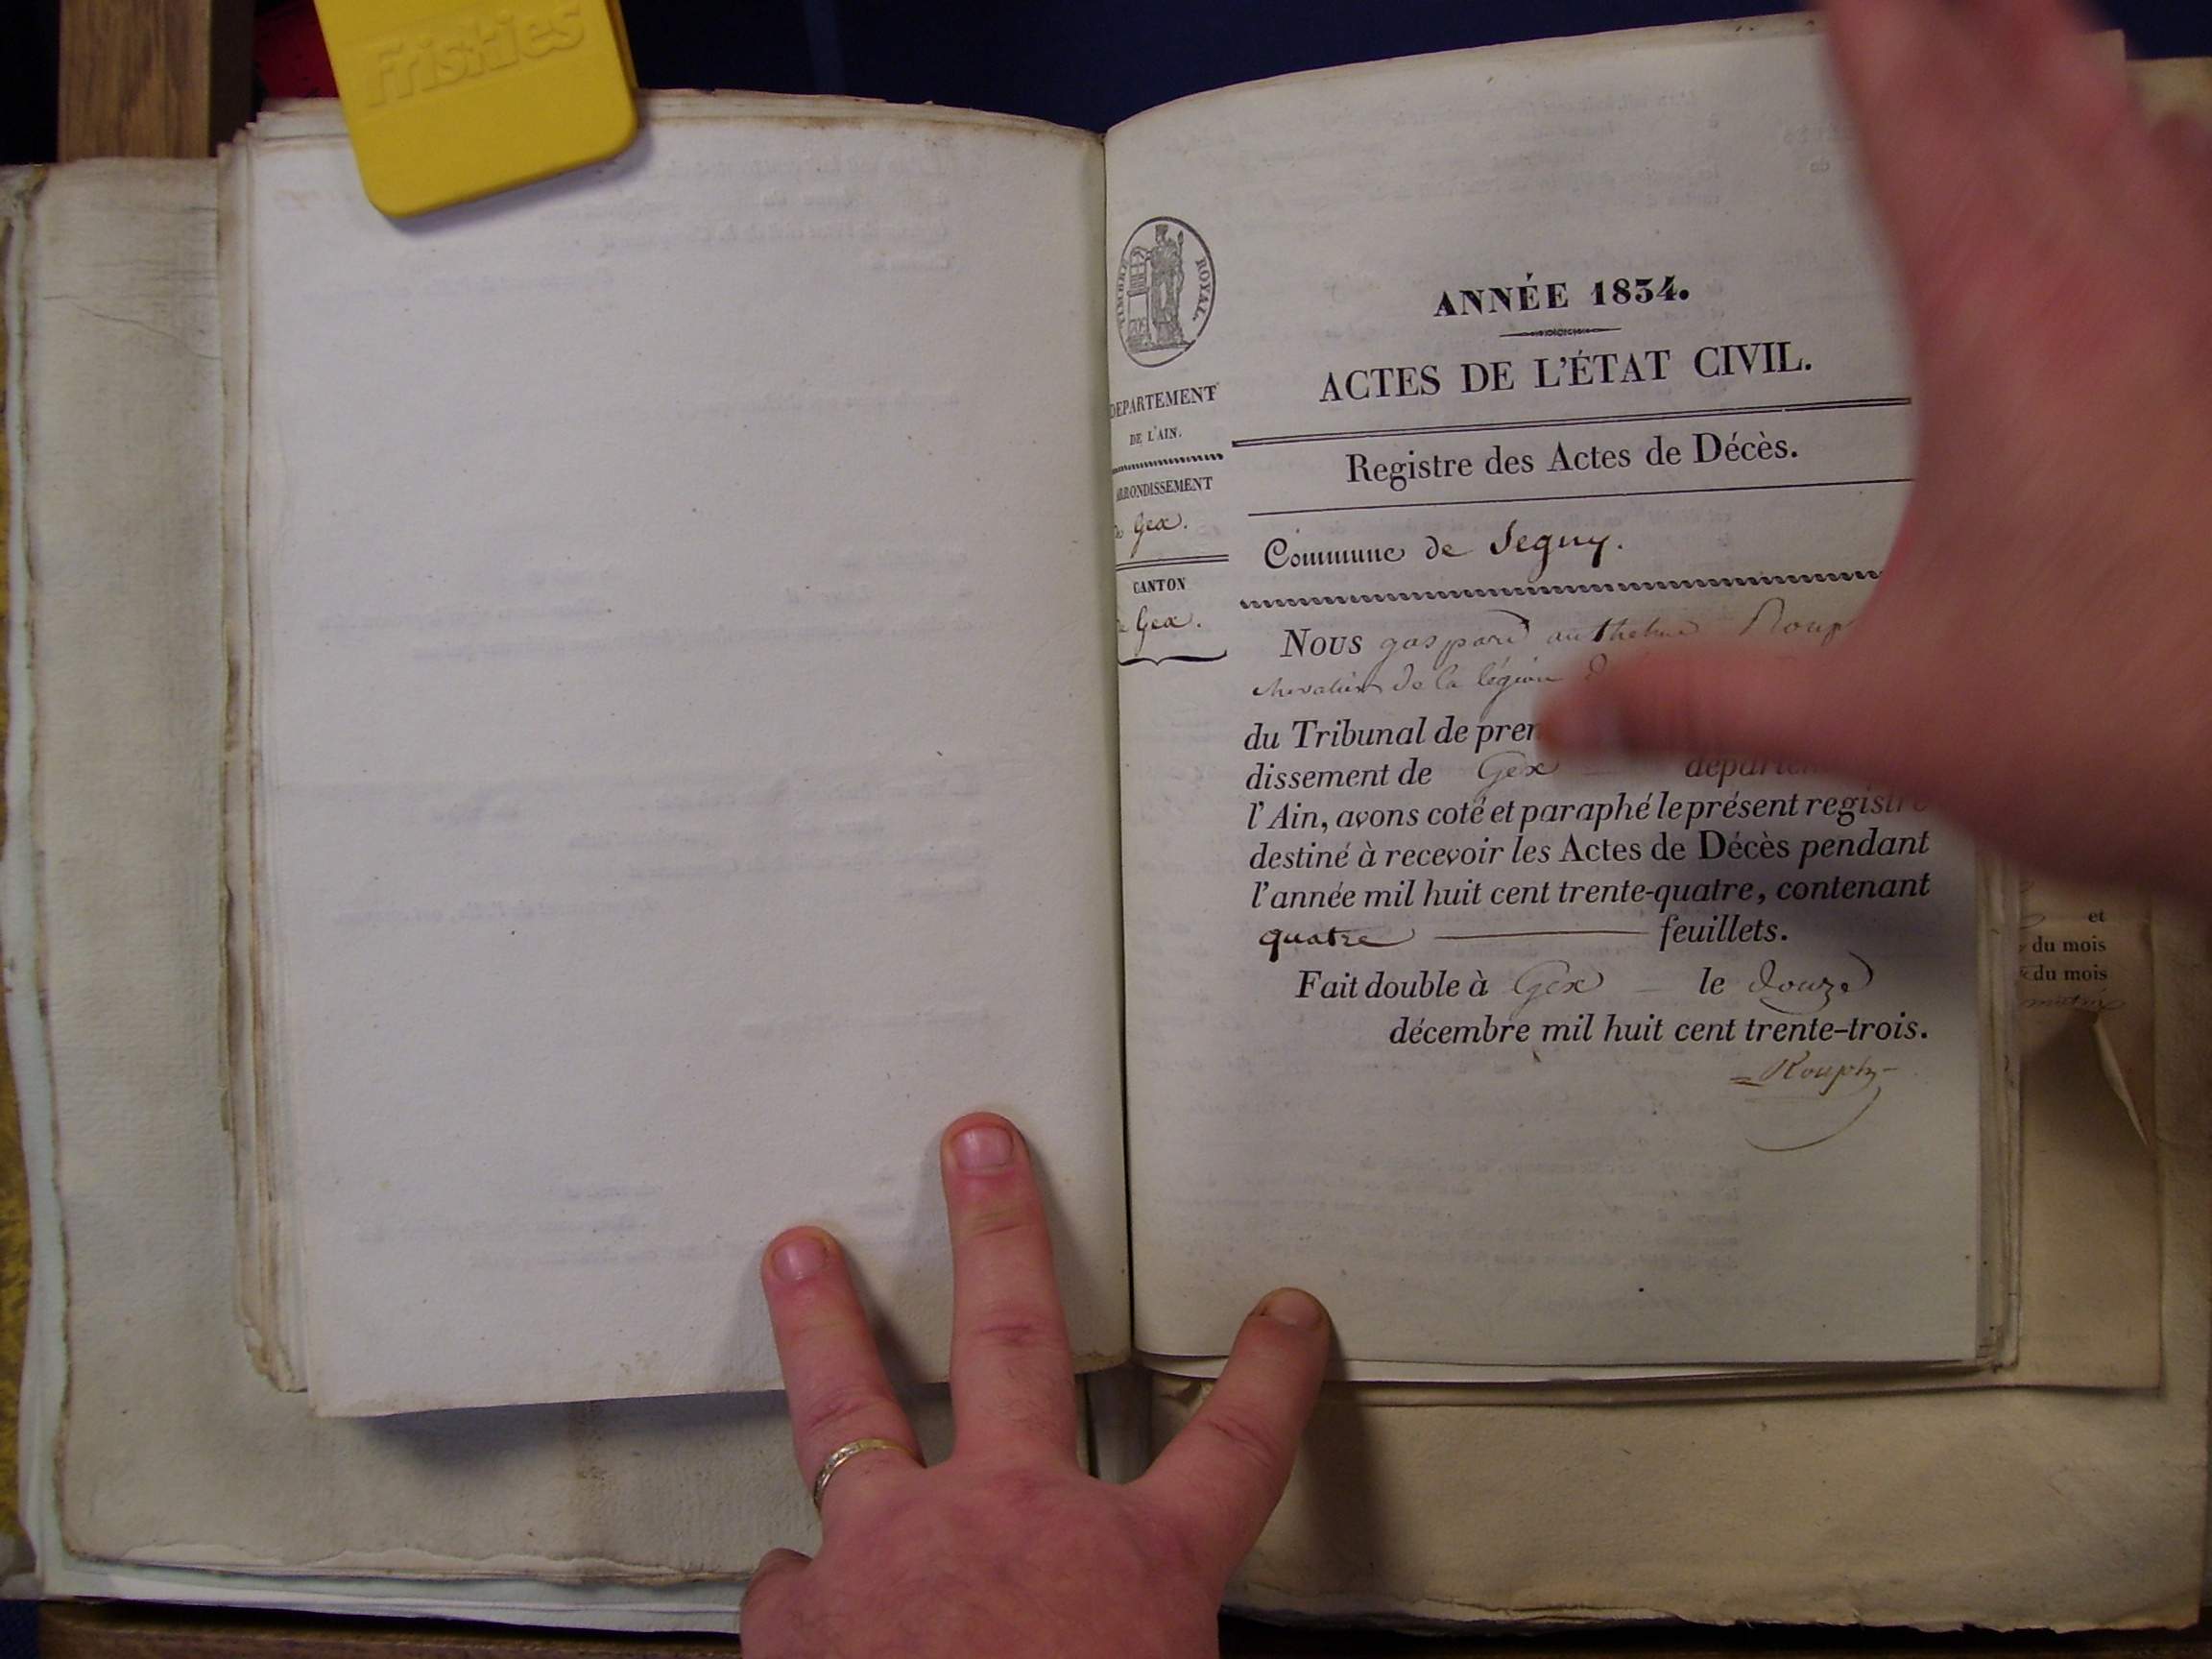 Friskies
TIMBRE ROYAL.
ANNÉE 1834.
ACTES DE L'ÉTAT CIVIL.
DEPARTEMENT
DE L'AIN.
Registre des Actes de Décès.
ARRONDISSEMENT
de Gex.
Commune de Segny.
CANTON
de Gex.
Nous gaspard anthelme Roup
chevalier de la légion
du Tribunal de prem
dissement de Gex départem
l'Ain, avons coté et paraphé le présent registre
destiné à recevoir les Actes de Décès pendant
l'année mil huit cent trente-quatre, contenant
quatre feuillets.
Fait double à Gex le douze
décembre mil huit cent trente-trois.
et
du mois
du mois